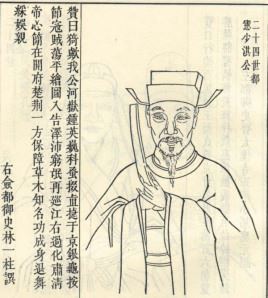 二十四世都
憲少淇公
贊曰猗歟我公河嶽鍾英巍科蚤掇直㨗于京銀龜按
節寇賊蕩平繪圖入告澤沛窮氓再廵江右過化肅清
帝心簡在開府楚荆一方保障草木知名功成身退舞
綵娛親
右僉都御史林一柱譔